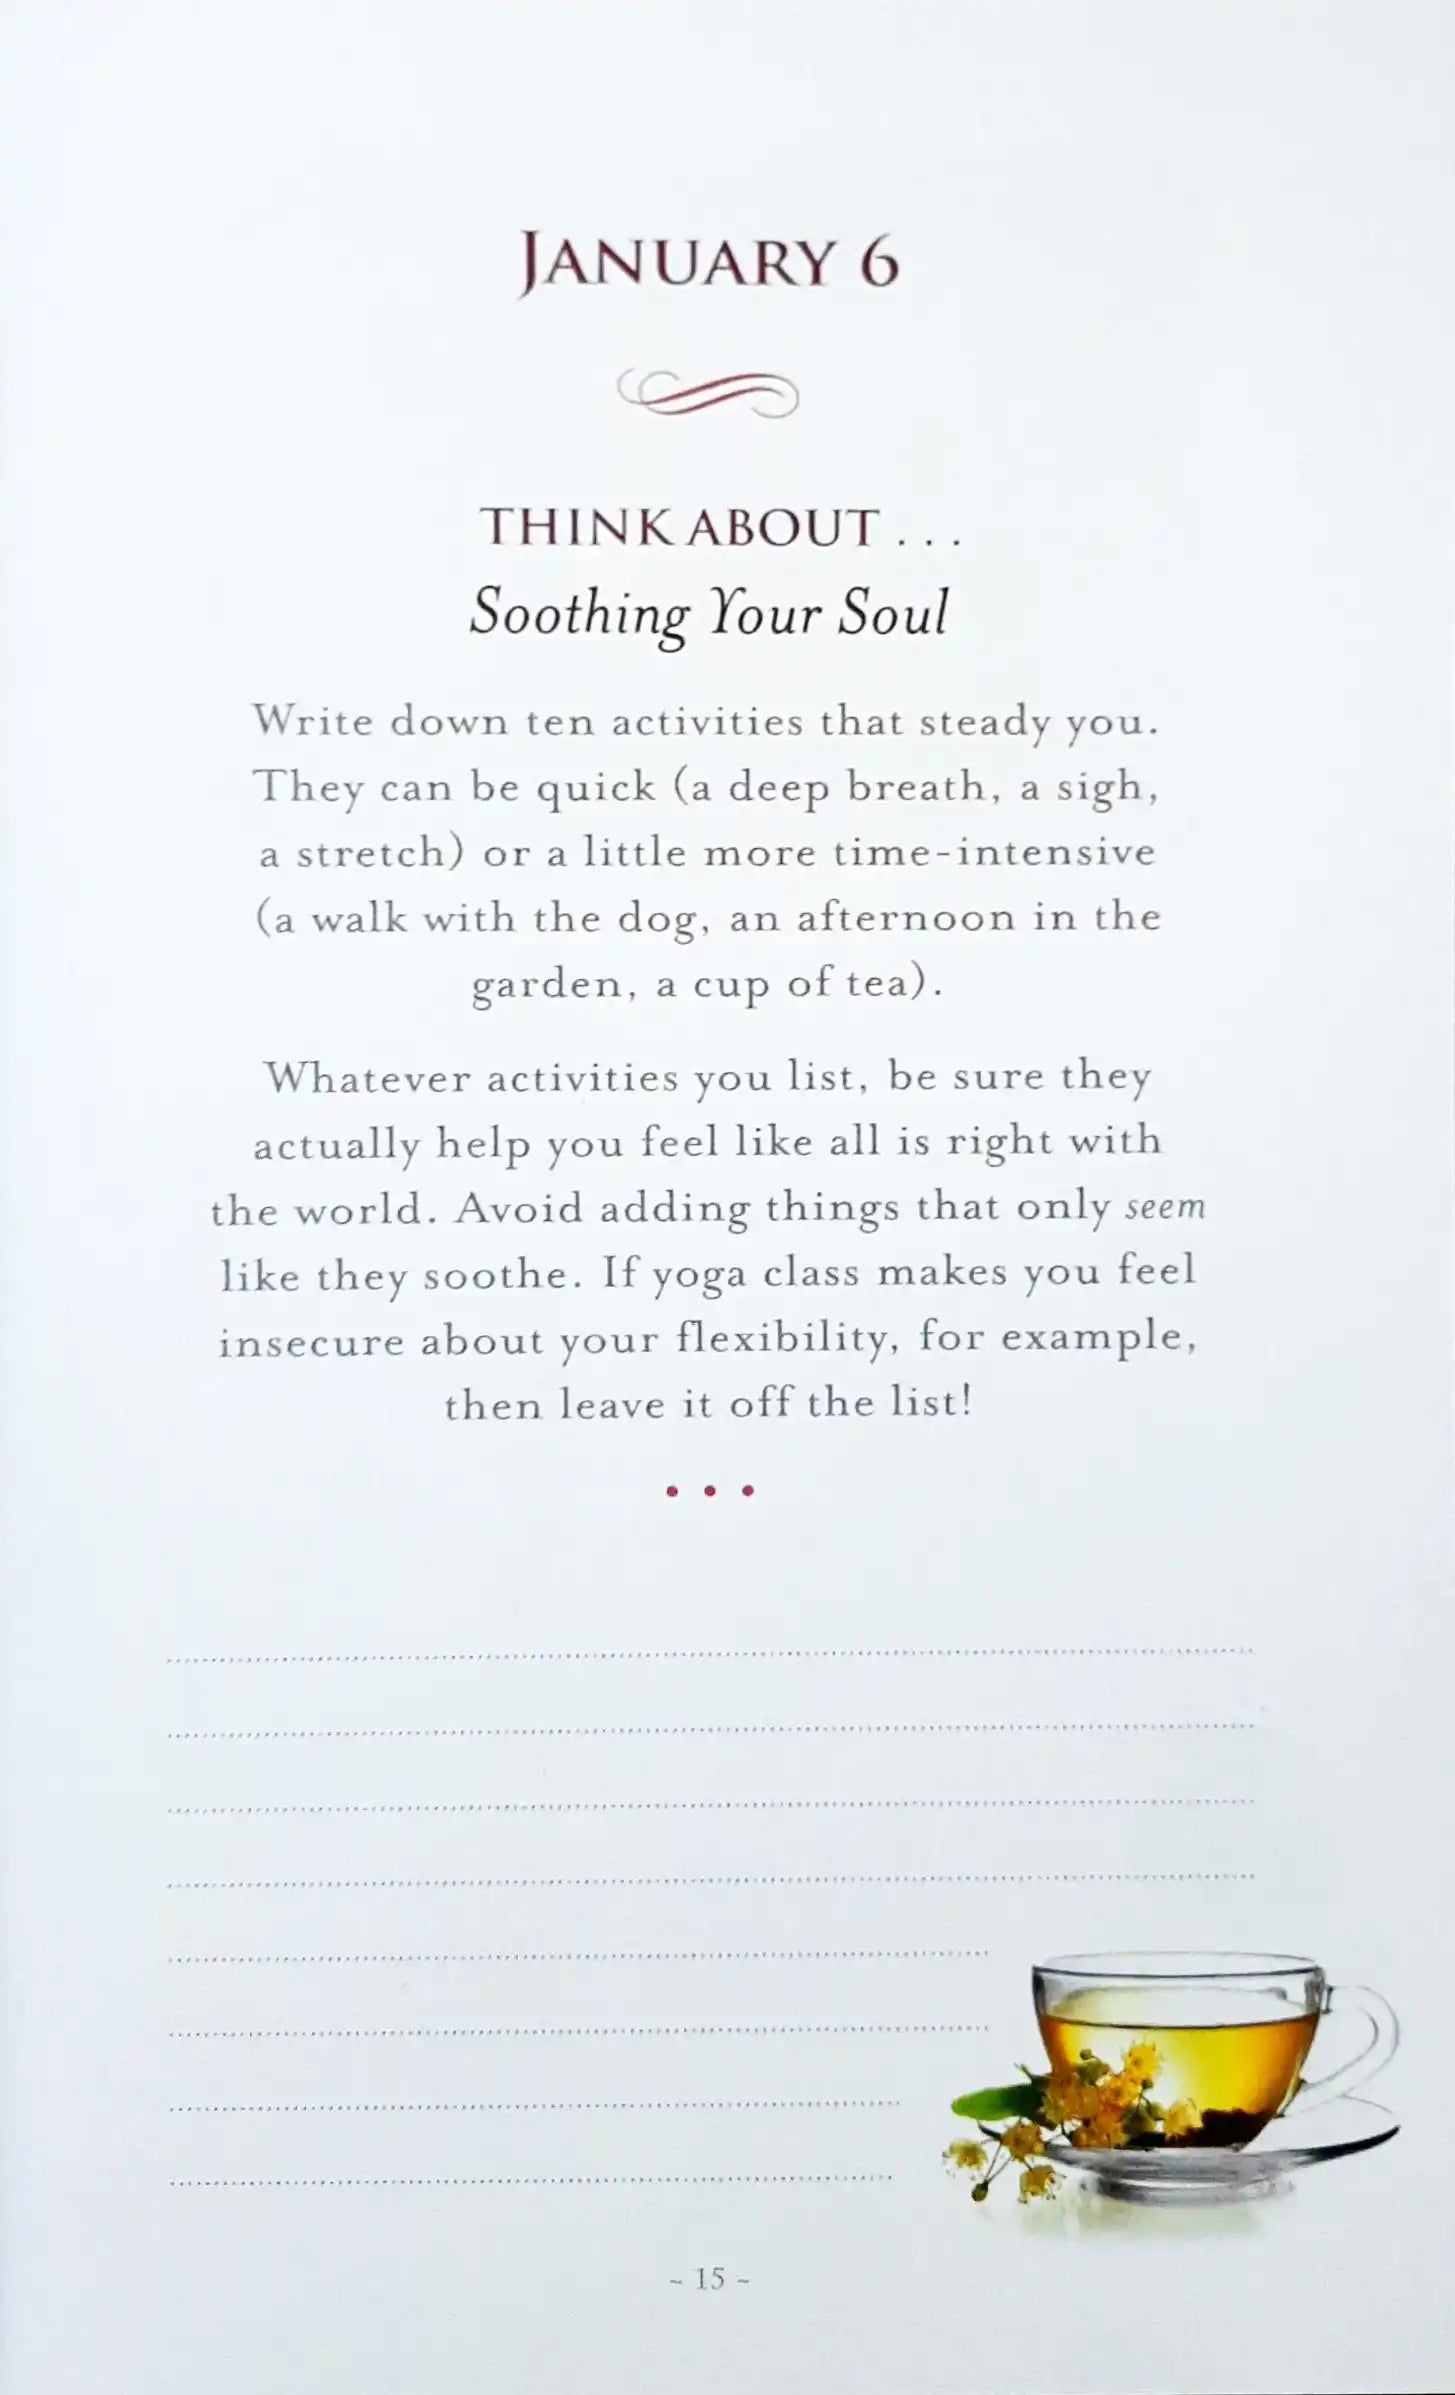 JANUARY 6
THINK ABOUT . . .
Soothing Your Soul
Write down ten activities that steady you.
They can be quick (a deep breath, a sigh,
a stretch) or a little more time-intensive
(a walk with the dog, an afternoon in the
garden, a cup of tea).
Whatever activities you list, be sure they
actually help you feel like all is right with
the world. Avoid adding things that only seem
like they soothe. If yoga class makes you feel
insecure about your flexibility, for example,
then leave it off the list!
• • •
~ 15 ~